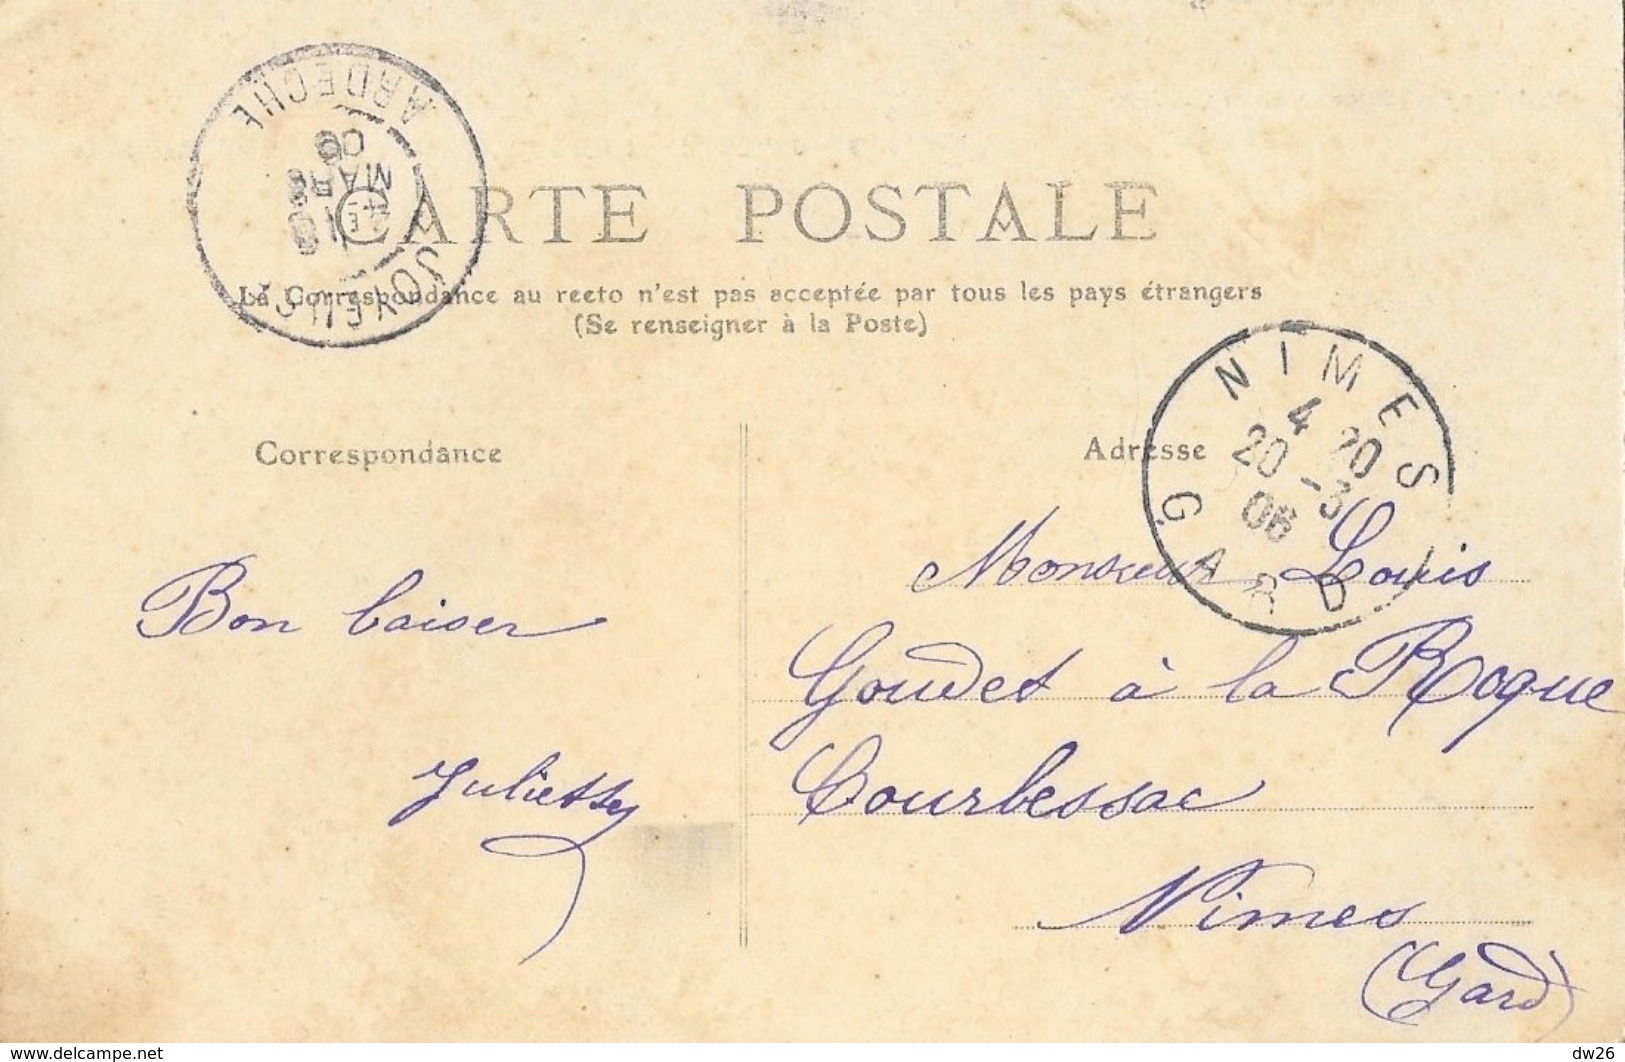 ARDECHE
JOYEUSE
MARS
06
CARTE POSTALE
La Correspondance au recto n'est pas acceptée par tous les pays étrangers
(Se renseigner à la Poste)
NIMES
4 20
20 -3
06
GARD
Correspondance
Adresse
Bon baiser
Juliette
Monsieur Louis
Goudet à la Roque
Courbessac
Nimes
(Gard)
www.delcampe.net
dw26